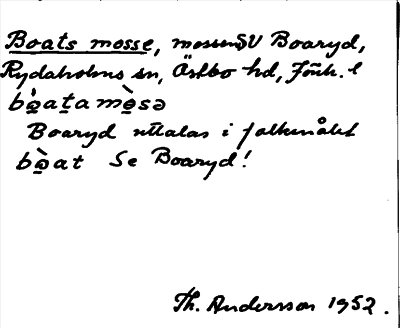 Boats mosse, mossen SV Boaryd,
Rydaholms sn, Östbo hd, Jönk. l
bo̱̊ata mo̱̊sə
Boaryd uttalas i folkmålet
bo̱̊at Se Boaryd!
Th. Andersson 1952.